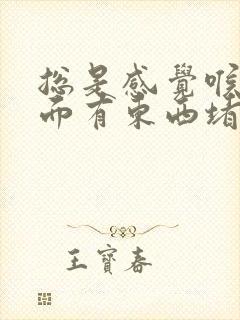 總是感覺喉
而有東西堵
王寶春